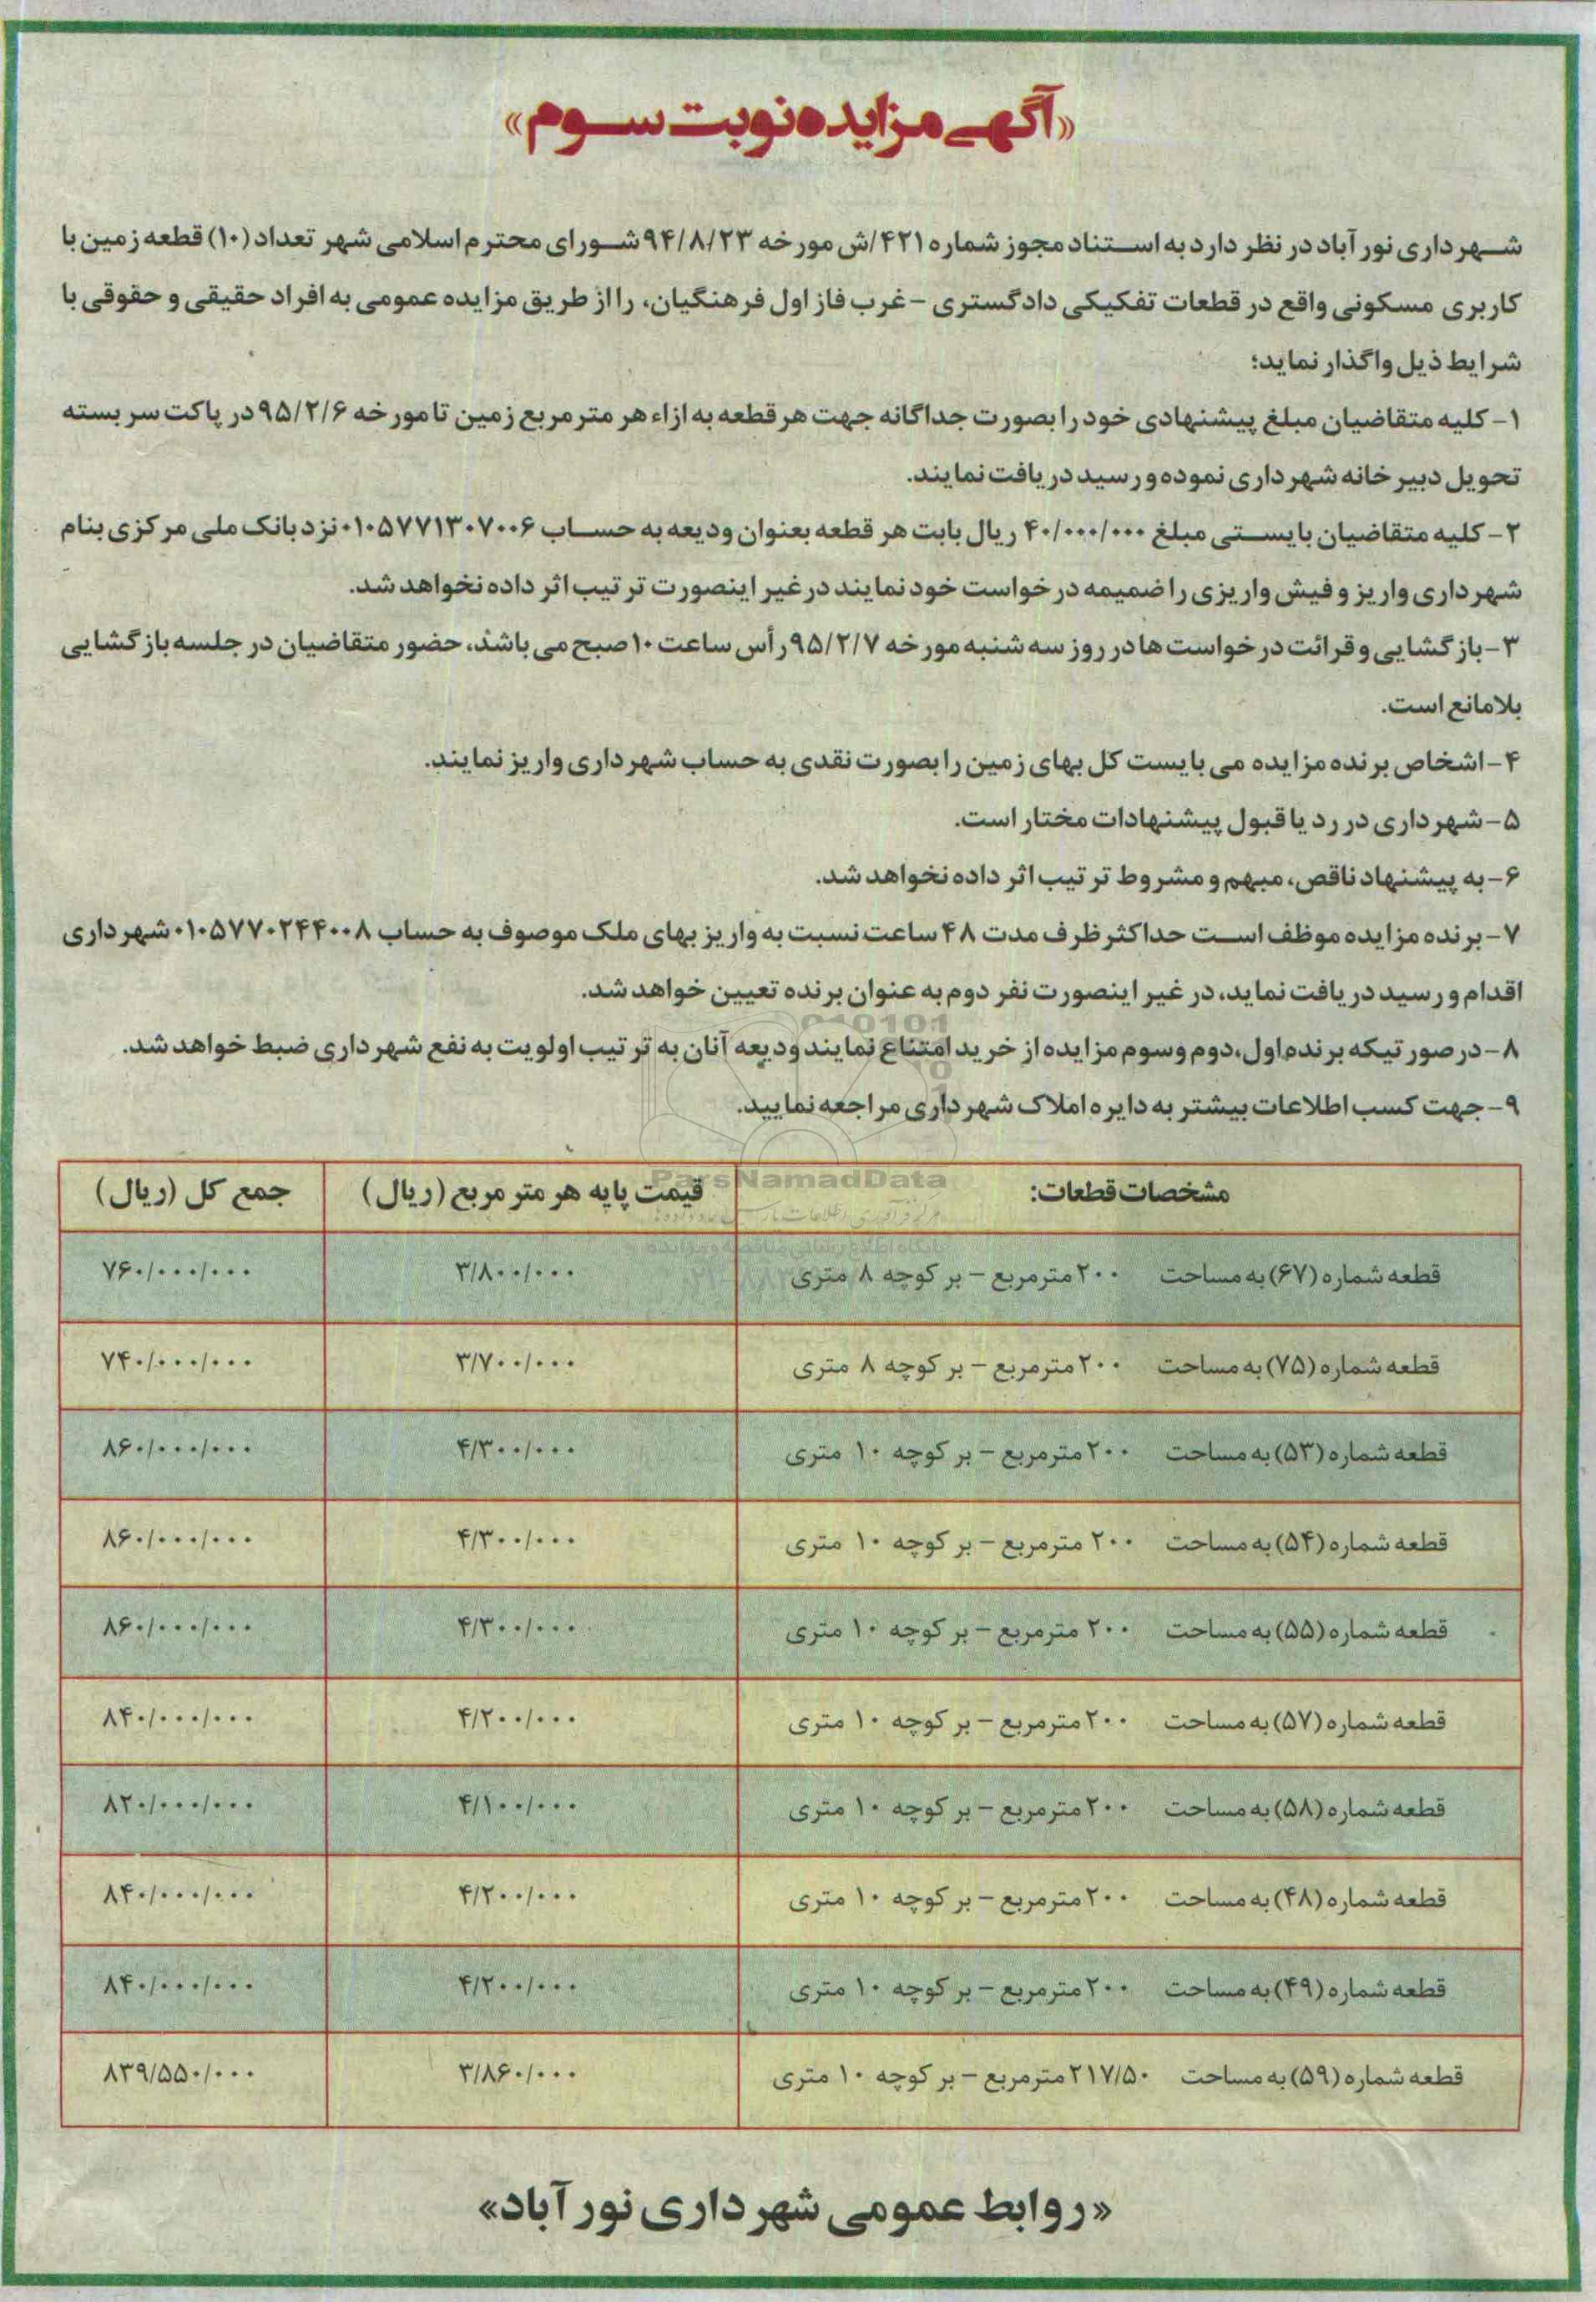 «آگهی مزایده نوبت سوم»
شهرداری نورآباد در نظر دارد به استناد مجوز شماره ۴۲۱/ش مورخه ۹۴/۸/۲۳ شورای محترم اسلامی شهر تعداد (۱۰) قطعه زمین با
کاربری مسکونی واقع در قطعات تفکیکی دادگستری - غرب فاز اول فرهنگیان، را از طریق مزایده عمومی به افراد حقیقی و حقوقی با
شرایط ذیل واگذار نماید؛
۱- کلیه متقاضیان مبلغ پیشنهادی خود را بصورت جداگانه جهت هر قطعه به ازاء هر متر مربع زمین تا مورخه ۹۵/۲/۶ در پاکت سر بسته
تحویل دبیرخانه شهرداری نموده و رسید دریافت نمایند.
۲- کلیه متقاضیان بایستی مبلغ ۴۰/۰۰۰/۰۰۰ ریال بابت هر قطعه بعنوان ودیعه به حساب ۰۱۰۵۷۷۱۳۰۷۰۰۶ نزد بانک ملی مرکزی بنام
شهرداری واریز و فیش واریزی را ضمیمه درخواست خود نمایند در غیر اینصورت ترتیب اثر داده نخواهد شد.
۳- بازگشایی و قرائت درخواست ها در روز سه شنبه مورخه ۹۵/۲/۷ رأس ساعت ۱۰ صبح می باشد، حضور متقاضیان در جلسه بازگشایی
بلامانع است.
۴- اشخاص برنده مزایده می بایست کل بهای زمین را بصورت نقدی به حساب شهرداری واریز نمایند.
۵- شهرداری در رد یا قبول پیشنهادات مختار است.
۶- به پیشنهاد ناقص، مبهم و مشروط ترتیب اثر داده نخواهد شد.
۷- برنده مزایده موظف است حداکثر ظرف مدت ۴۸ ساعت نسبت به واریز بهای ملک موصوف به حساب ۰۱۰۵۷۷۰۲۴۴۰۰۸ شهرداری
اقدام و رسید دریافت نماید، در غیر اینصورت نفر دوم به عنوان برنده تعیین خواهد شد.
۸- در صورتیکه برنده اول، دوم و سوم مزایده از خرید امتناع نمایند ودیعه آنان به ترتیب اولویت به نفع شهرداری ضبط خواهد شد.
۹- جهت کسب اطلاعات بیشتر به دایره املاک شهرداری مراجعه نمایید.
ParsNamadData
مشخصات قطعات: قیمت پایه هر متر مربع (ریال) جمع کل (ریال)
قطعه شماره (۶۷) به مساحت ۲۰۰ مترمربع - بر کوچه ۸ متری ۳/۸۰۰/۰۰۰ ۷۶۰/۰۰۰/۰۰۰
قطعه شماره (۷۵) به مساحت ۲۰۰ مترمربع - بر کوچه ۸ متری ۳/۷۰۰/۰۰۰ ۷۴۰/۰۰۰/۰۰۰
قطعه شماره (۵۳) به مساحت ۲۰۰ مترمربع - بر کوچه ۱۰ متری ۴/۳۰۰/۰۰۰ ۸۶۰/۰۰۰/۰۰۰
قطعه شماره (۵۴) به مساحت ۲۰۰ مترمربع - بر کوچه ۱۰ متری ۴/۳۰۰/۰۰۰ ۸۶۰/۰۰۰/۰۰۰
قطعه شماره (۵۵) به مساحت ۲۰۰ مترمربع - بر کوچه ۱۰ متری ۴/۳۰۰/۰۰۰ ۸۶۰/۰۰۰/۰۰۰
قطعه شماره (۵۷) به مساحت ۲۰۰ مترمربع - بر کوچه ۱۰ متری ۴/۲۰۰/۰۰۰ ۸۴۰/۰۰۰/۰۰۰
قطعه شماره (۵۸) به مساحت ۲۰۰ مترمربع - بر کوچه ۱۰ متری ۴/۱۰۰/۰۰۰ ۸۲۰/۰۰۰/۰۰۰
قطعه شماره (۴۸) به مساحت ۲۰۰ مترمربع - بر کوچه ۱۰ متری ۴/۲۰۰/۰۰۰ ۸۴۰/۰۰۰/۰۰۰
قطعه شماره (۴۹) به مساحت ۲۰۰ مترمربع - بر کوچه ۱۰ متری ۴/۲۰۰/۰۰۰ ۸۴۰/۰۰۰/۰۰۰
قطعه شماره (۵۹) به مساحت ۲۱۷/۵۰ مترمربع - بر کوچه ۱۰ متری ۳/۸۶۰/۰۰۰ ۸۳۹/۵۵۰/۰۰۰
«روابط عمومی شهرداری نورآباد»